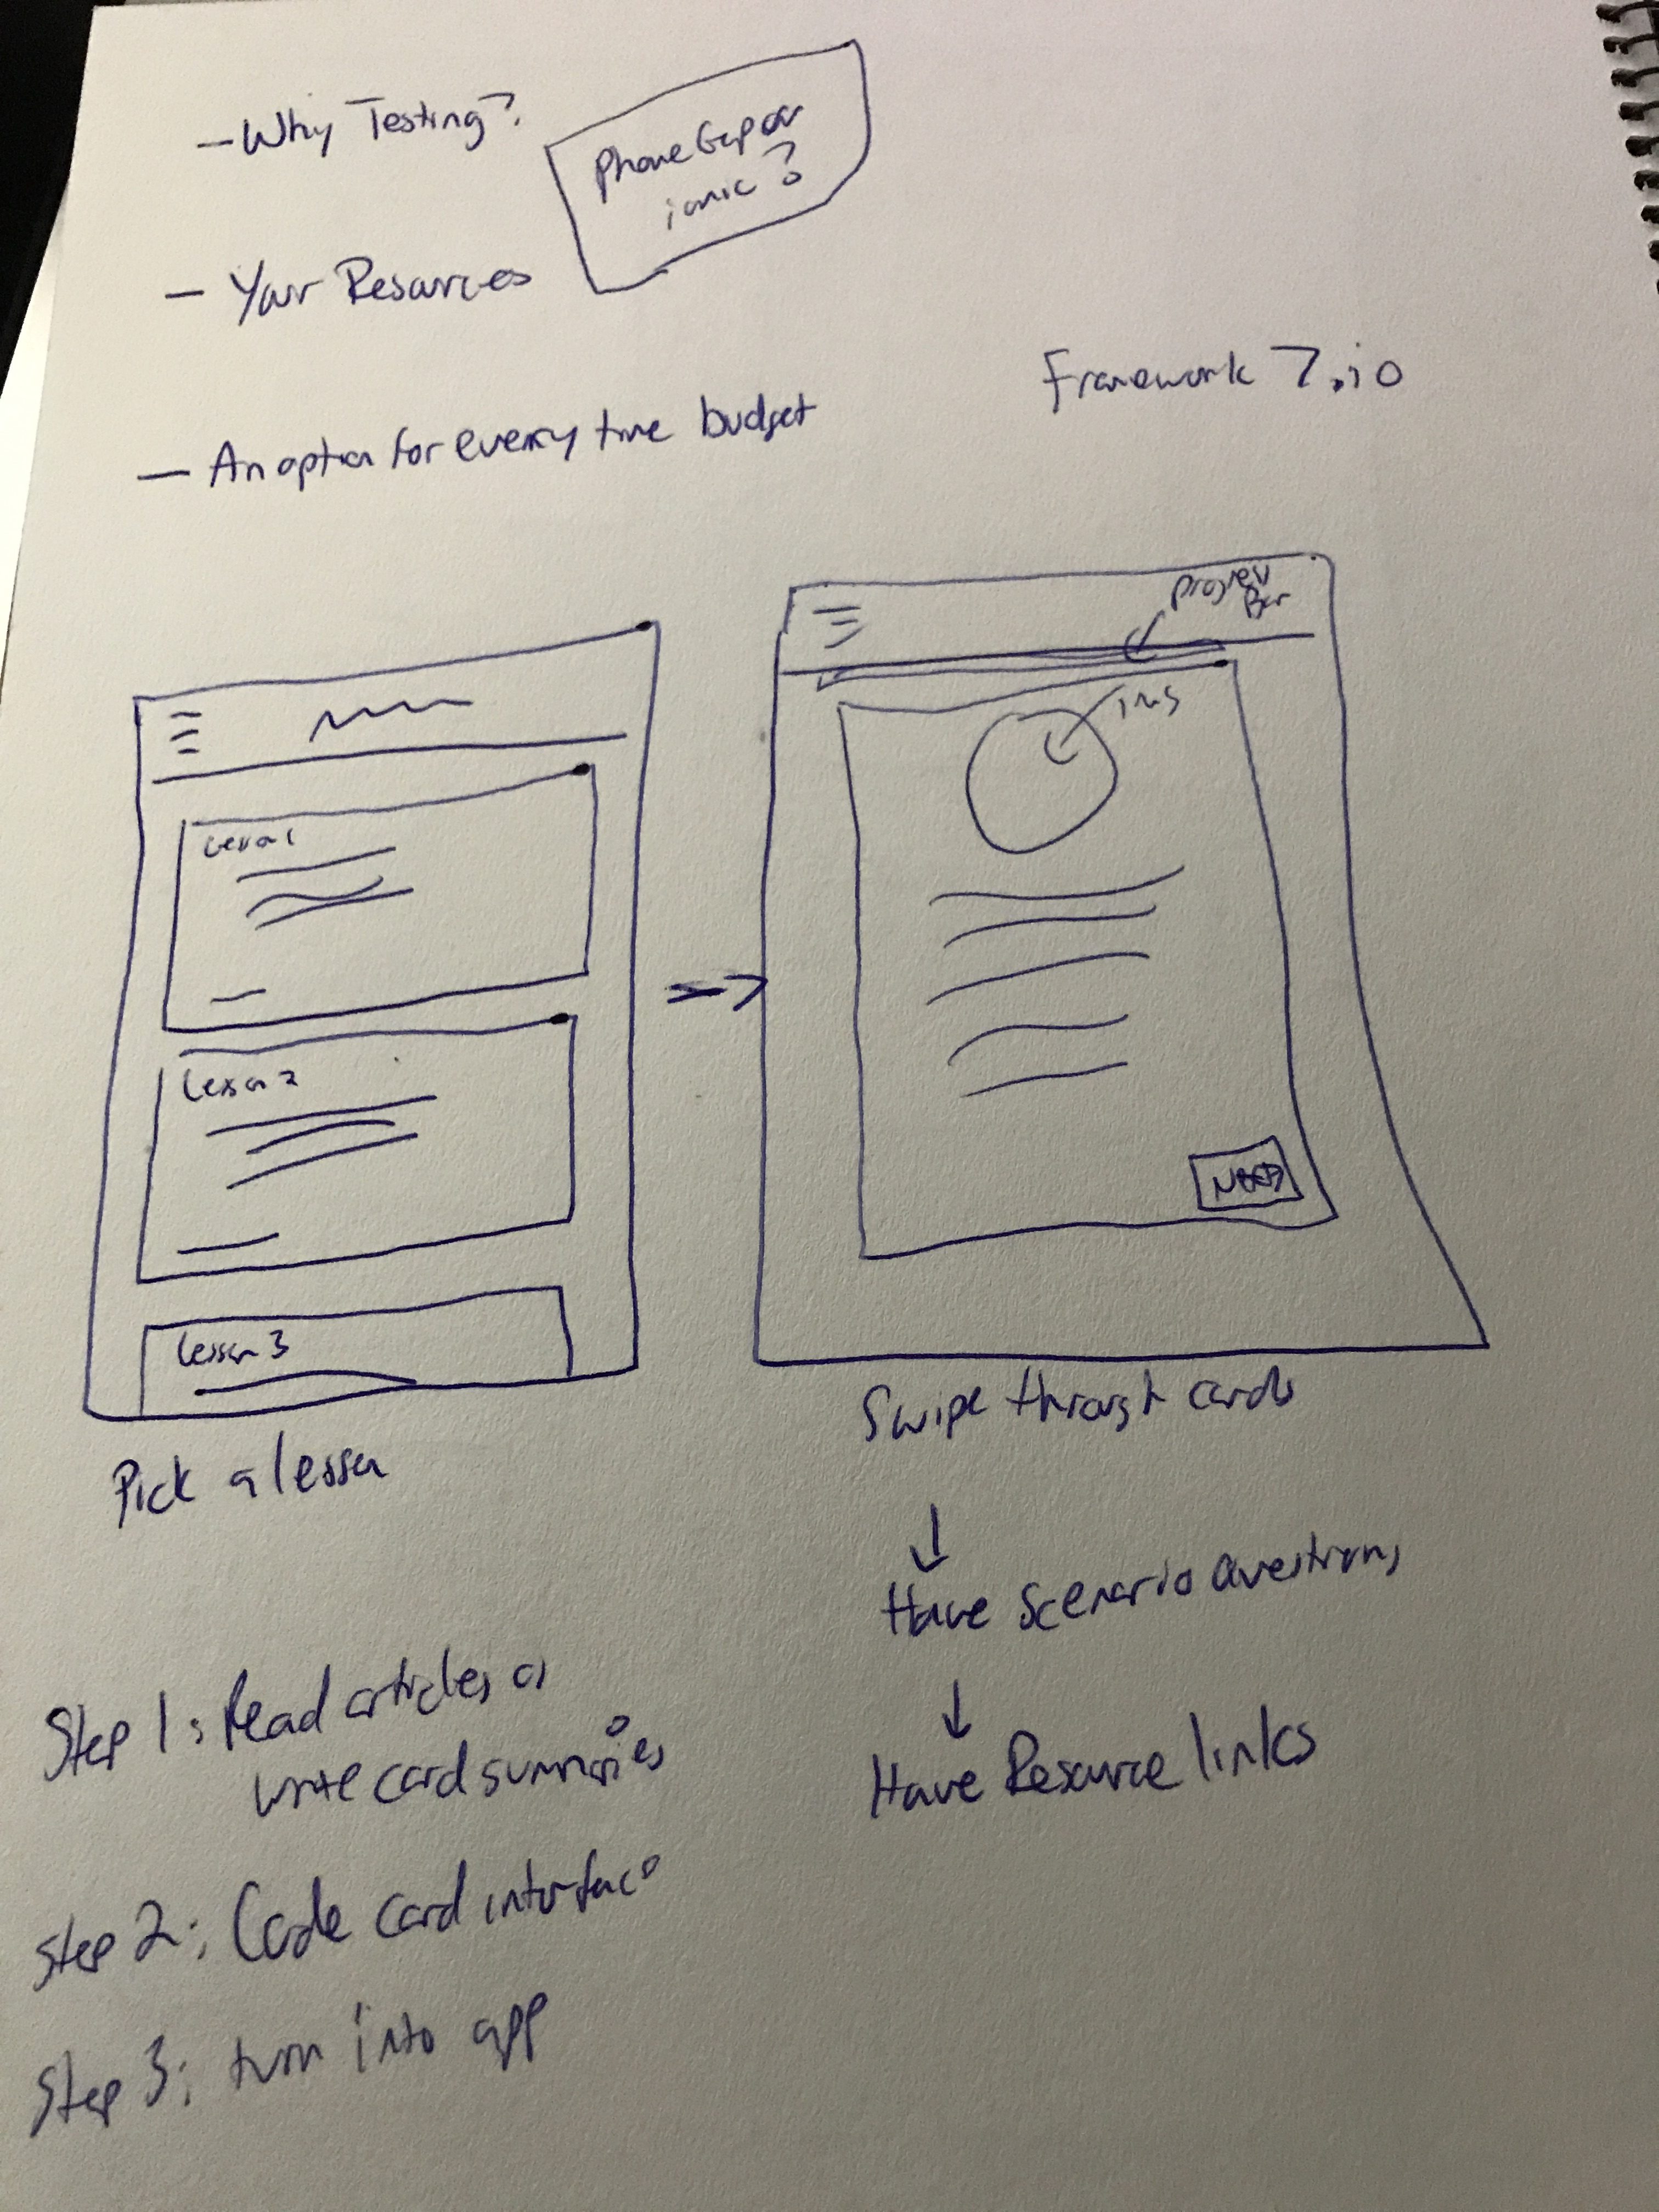 - Why Testing?
PhoneGap or
ionic?
- Your Resources
Framework 7.io
- An option for every time budget
Progress
Bar
Img
Lesson 1
Lesson 2
Lesson 3
Next
Pick a lesson
Swipe through cards
Have Scenario Questions
Have Resource links
Step 1: Read articles &
write card summaries
Step 2: Code card interface
Step 3: turn into app